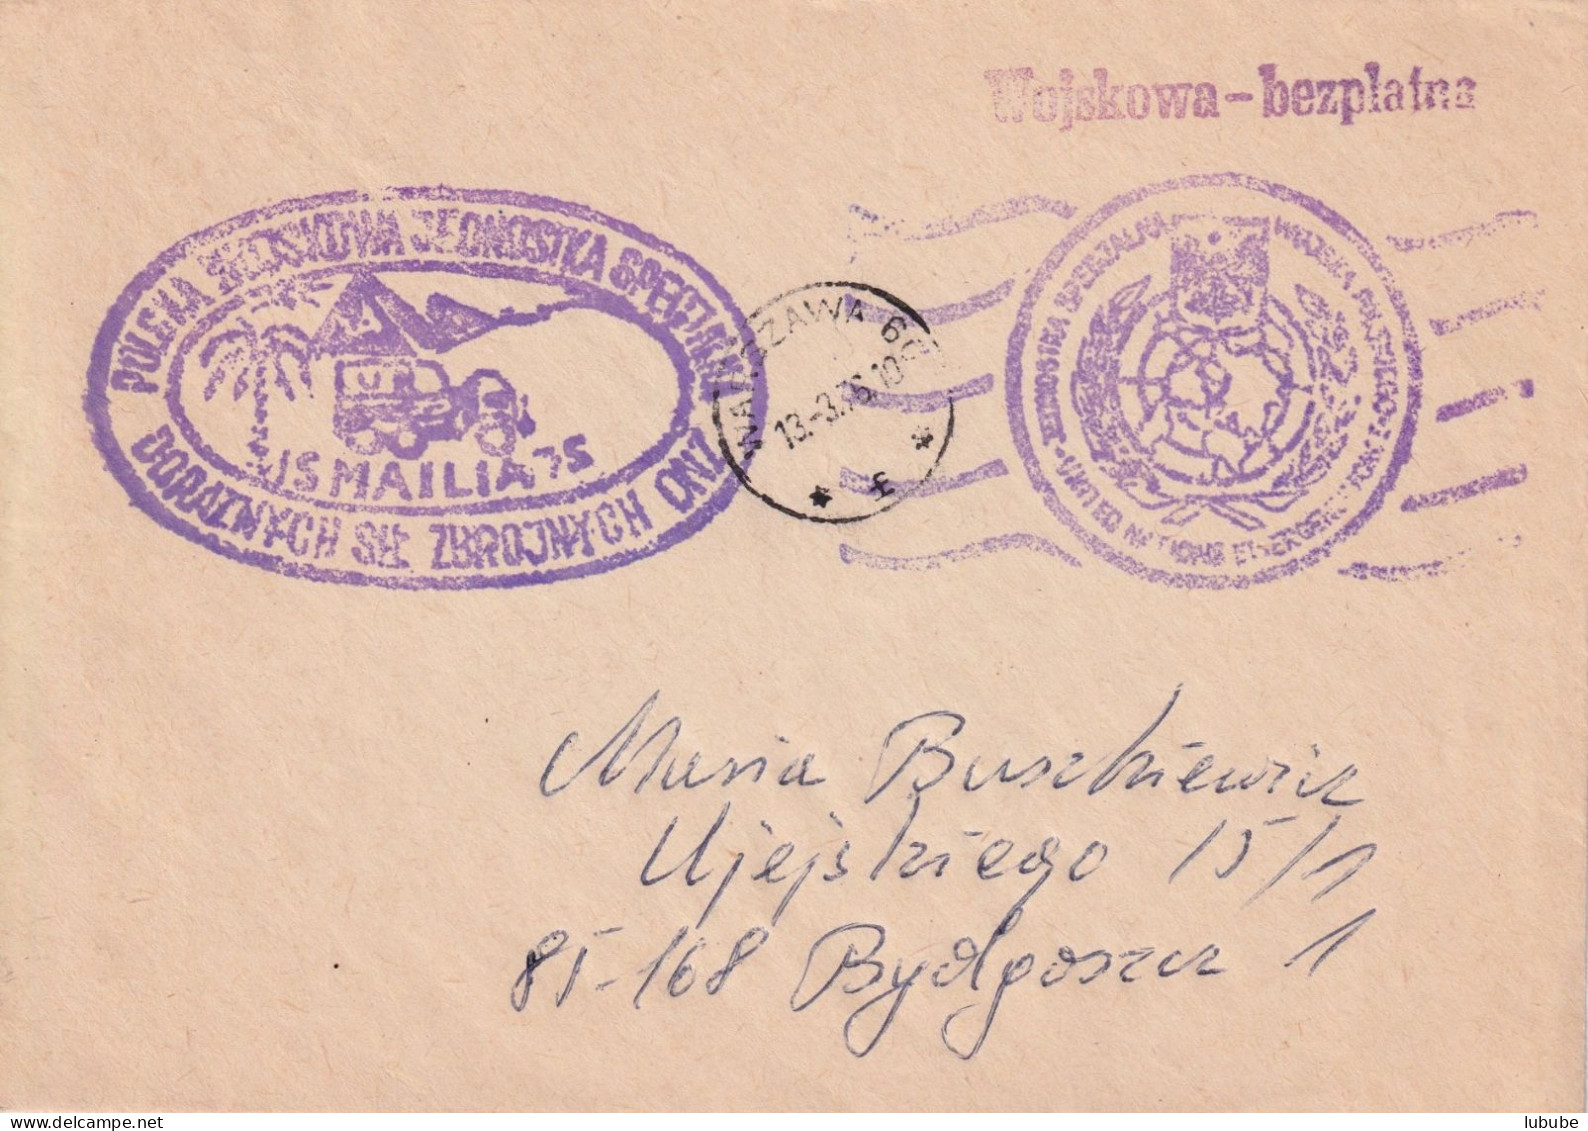 Wojskowa-bezpłatna
POLSKA WOJSKOWA JEDNOSTKA SPECJALNA
ISMAILIA 75
DORAZNYCH SIŁ ZBROJNYCH ONZ
WARSZAWA 60
13.-3.76.10
£
JEDNOSTKA SPECJALNA WOJSKA POLSKIEGO
UNITED NATIONS EMERGENCY FORCE
Maria Buszkiewicz
Ujejskiego 15/1
85-168 Bydgoszcz 1
www.delcampe.net
lubube